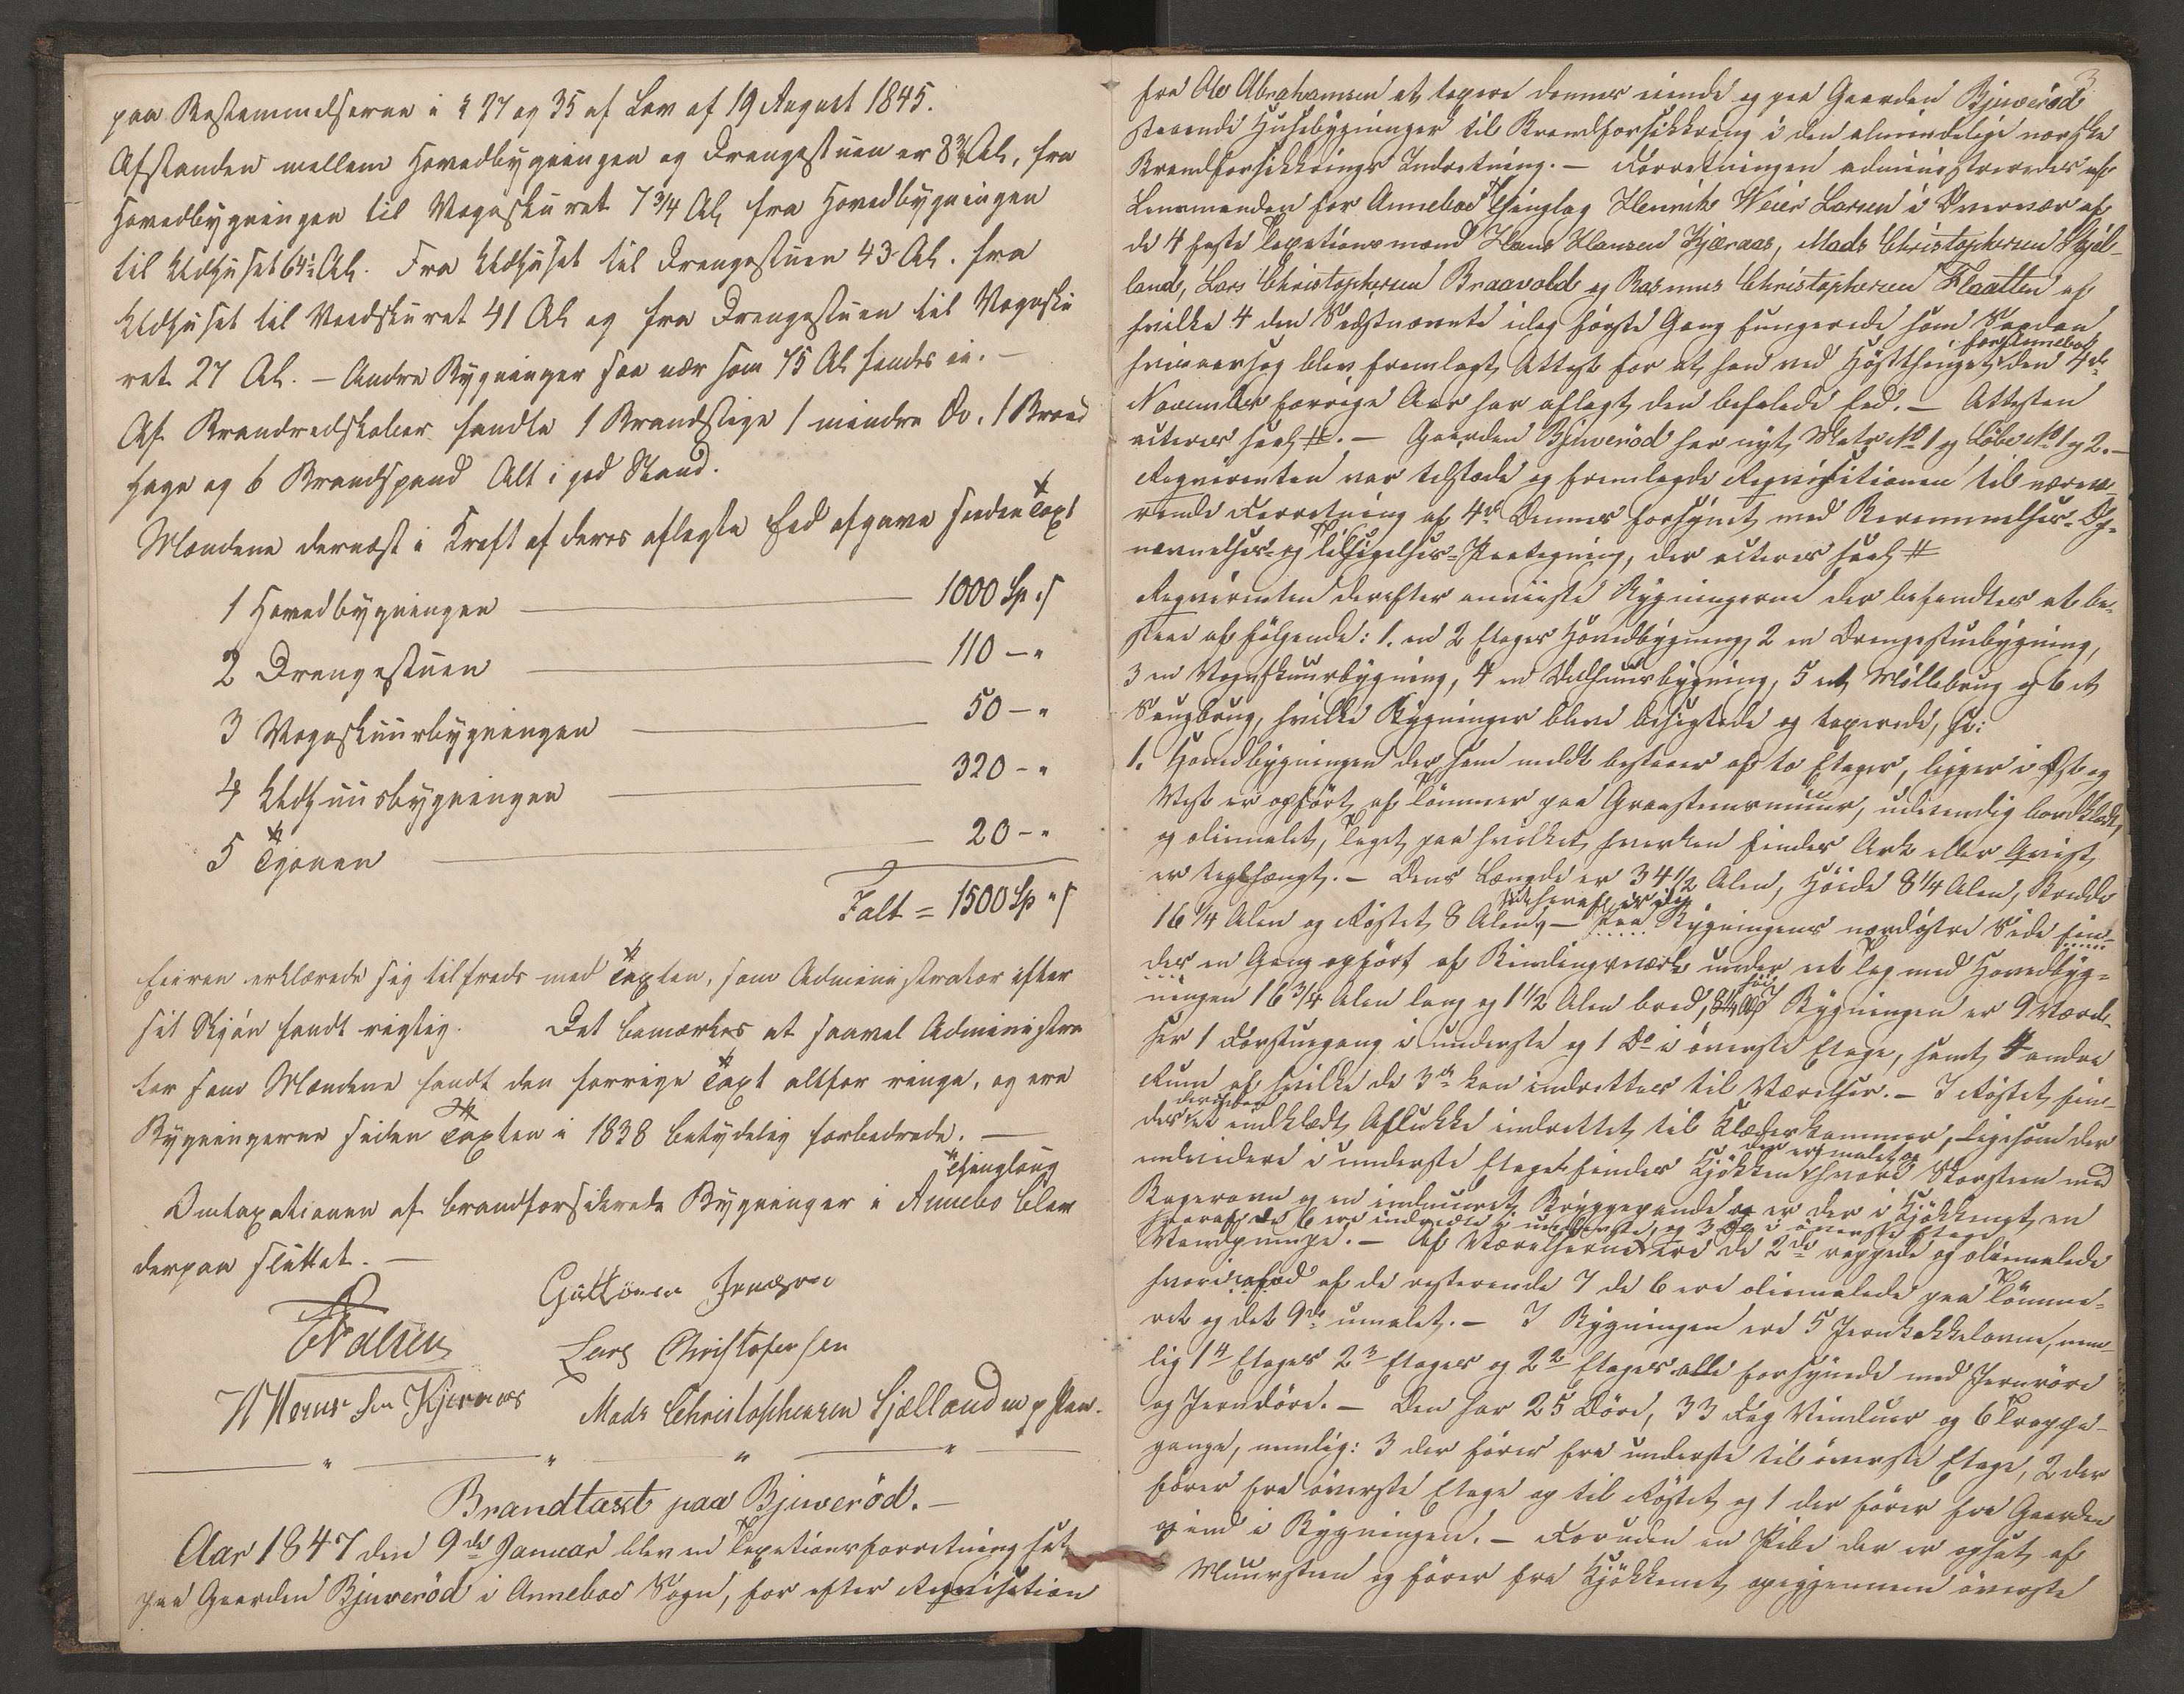 paa Bestemmelserne i § 27 og 35 af Lov af 19 August 1845.
Afstanden mellem Hovedbygningen og Drengestuen er 8¾ Al, fra
Hovedbygningen til Vognskuret 7¾ Al, fra Hovedbygningen
til Udhuset 64½ Al. Fra Udhuset til Drengestuen 43 Al. fra
Udhuset til Vedskuret 41 Al og fra Drengestuen til Vognsku
ret 27 Al. – Andre Bygninger saa nær som 75 Al fandtes ei. –
Af Brandredskaber fandtes 1 Brandstige 1 mindre Do. 1 Brand
hage og 6 Brandspand Alt i god Stand.
Mændene dernæst i Kraft af deres aflagte Eed afgave saadan Taxt
1 Hovedbygningen — 1000 Sp.
2 Drengestuen — 110 – "
3 Vognskuurbygningen — 50 – "
4 Udhuusbygningen — 320 – "
5 — 20 – "
Ialt = 1500 Sp "
Eieren erklærede sig tilfreds med Taxten, som Administrator efter
sit Skjön fandt rigtig. Det bemærkes at saavel Administra
tor som Mændene fandt den forrige Taxt altfor ringe, og ere
Bygningerne siden Taxten i 1838 betydelig forbedrede. –
Omtaxationen af brandforsikrede Bygninger i Annebo Thinglaug blev
derpaa sluttet. –
Lars Christofersen
Kjæraas Mads Christophersen Sjælland m p Pen.
" " " "
Brandtaxt paa Bjuveröd. –
Aar 1847 den 9de Januar blev en Taxationsforretning sat
paa Gaarden Bjuveröd i Anneboe Sogn, for efter Reqvisition
3
fra Ole Abrahamsen at taxere dennes eiende og paa Gaarden Bjuveröd
staaende Huusbygninger til Brandforsikkring i den almindelige norske
Brandforsikkrings Indretning. – Forretningen administreredes af
Lensmanden for Anneboe Thinglag Henrik Weier Larsen i Overvær af
de 4 faste Taxationsmænd Hans Hansen Kjæraas, Mads Christophersen Sjæl-
land, Lars Christophersen Braavold og Rasmus Christophersen Flaatten af
hvilke 4 den Sidstnævnte idag første Gang fungerede som Saadan
hvisaarsag blev fremlagt Attest for at han ved Høstthinget for Anneboe den 4de
November forrige Aar har aflagt den befalede Eed. – Attesten
acteres saal. #. – Gaarden Bjuveröd har nyt Matr No 1 og Löbe No 1 og 2. –
Reqvirenten var tilstede og fremlagde Reqvisitionen til nærvæ-
rende Forretning af 4de Dennes forsynet med Berammelses- Op-
nævnelses- og Tilsigelses-Paategning, der acteres saal. #
Reqvirenten derefter anviiste Bygningerne der befandtes at be-
staae af følgende: 1. en 2 Etages Hovedbygning, 2 en Drengestuebygning,
3 en Vognskuurbygning, 4 en Udhuusbygning, 5 et Möllebrug og 6 et
Saugbrug, hvilke Bygninger bleve besigtede og taxerede, sc:
1. Hovedbygningen der som meldt bestaaer af to Etager, ligger i Øst og
Vest er opført af Tömmer paa Graasteensmuur, udvendig bordklædt,
og oliemalet, Taget paa hvilket hverken findes Ark eller Qvist
er teglhængt. – Dens Længde er 34½ Alen, Höide 8¼ Alen, Bredde
16¼ Alen og Röstet 8 Alen, – Paa Bygningens nordöstre Side fin-
des en Gang opført af Bindingsværk under eet Tag med Hovedbyg-
ningen 16¾ Alen lang og 1½ Alen bred, høi Bygningen er 9 Værel-
ser 1 Forstuegang i underste og 1 Do i överste Etage, samt 4 andre
Rum af hvilke de 3de kan indrettes til Værelser. – I Röstet fin-
des et indklædt Aflukke indrettet til Klæderkammer, ligesom der
endvidere i underste Etage findes Kjökken der er malet og hvori Skorsteen med
Bagerovn og en indmuuret Bryggepande og er der i Kjökkenet en
hvoraf de 6 ere indredte i underste, og 3 Do i överste Etage
Vandpumpe. – Af Værelserne ere de 2de rappede og oliemalede
hvorimod af de resterende 7 de 6 ere oliemalede paa Tömme-
ret og det 9de umalet. – I Bygningen ere 5 Jernkakkelovne, nem-
lig 1 4 Etages 2 3 Etages og 2 2 Etages alle forsynede med Jernröre
og Jerndöre. – Den har 25 Döre, 33 Fag Vinduer og 6 Trappe-
gange, nemlig: 3 der förer fra underste til överste Etage, 2 der
förer fra överste Etage op til Röstet og 1 der förer fra Gaarden
op ind i Bygningen. – Foruden en Pibe der er opsat af
Muursteen og förer fra Kjökkenet opigjennem överste